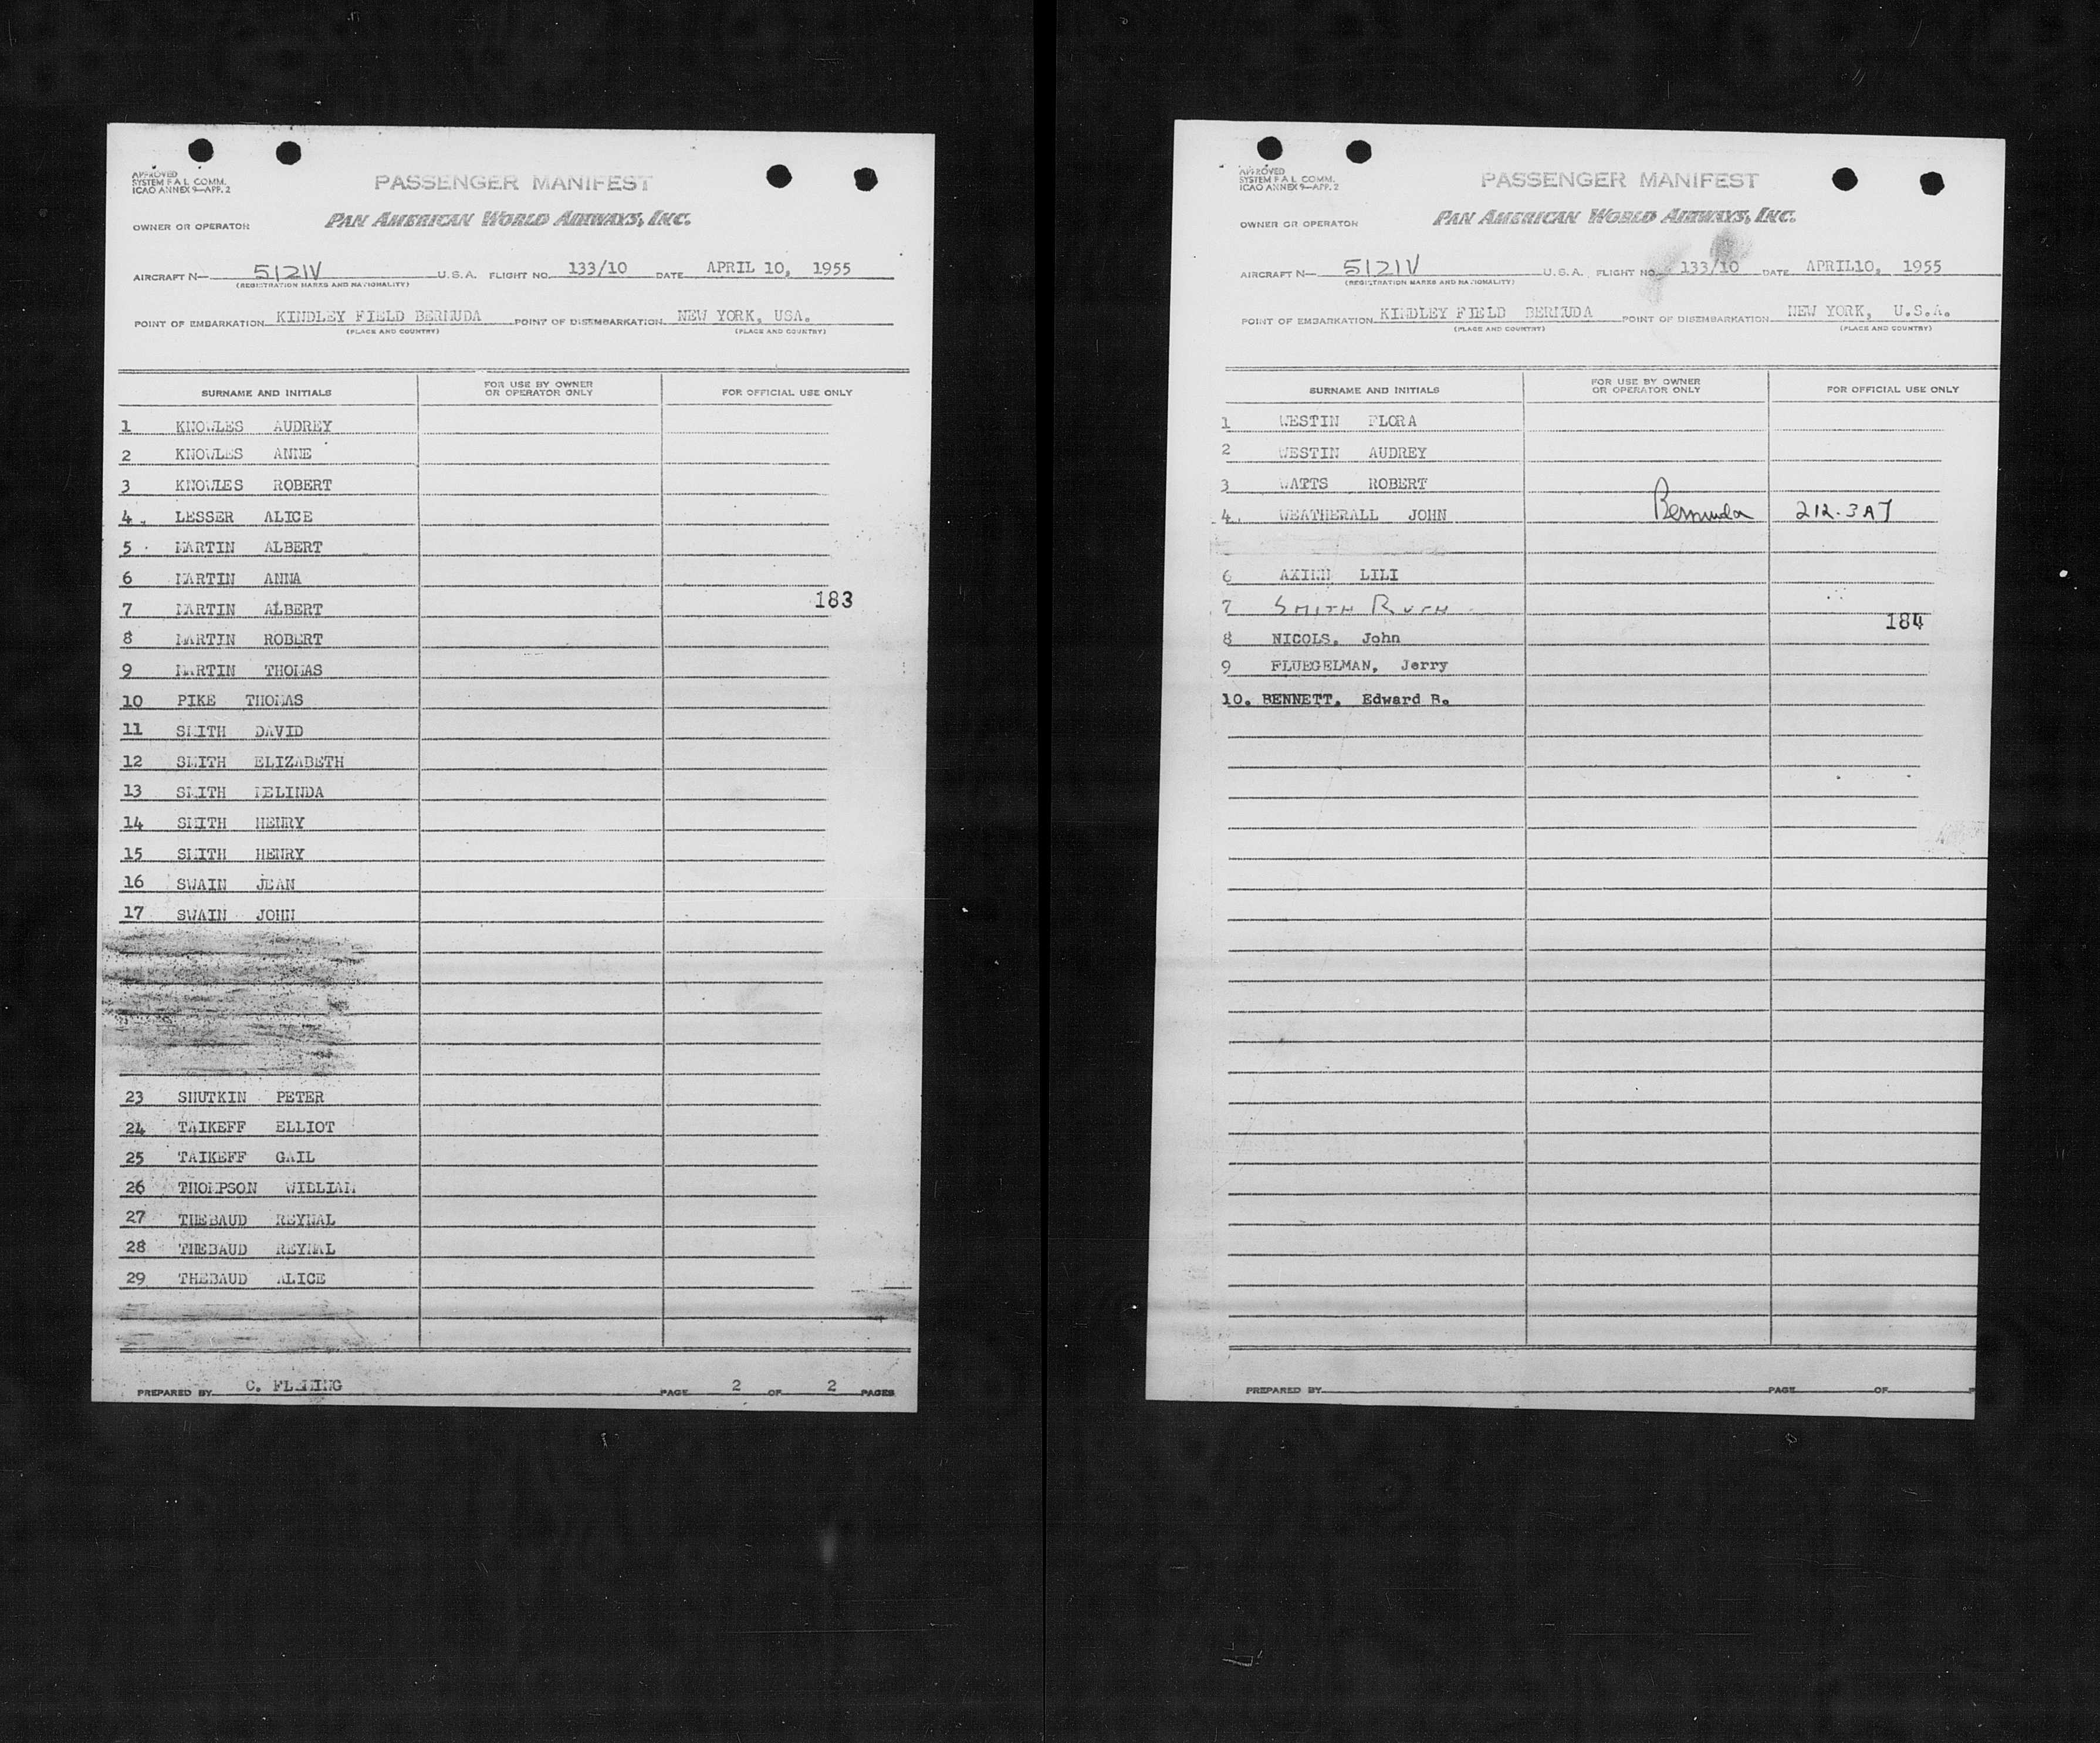 APPROVED
SYSTEM F A L COMM.
ICAO ANNEX 9—APP. 2
PASSENGER MANIFEST
OWNER OR OPERATOR
PAN AMERICAN WORLD AIRWAYS, INC.
AIRCRAFT N— 5121V U.S.A. FLIGHT NO. 133/10 DATE APRIL 10, 1955
(REGISTRATION MARKS AND NATIONALITY)
POINT OF EMBARKATION KINDLEY FIELD BERMUDA POINT OF DISEMBARKATION NEW YORK, USA.
(PLACE AND COUNTRY) (PLACE AND COUNTRY)
SURNAME AND INITIALS FOR USE BY OWNER OR OPERATOR ONLY FOR OFFICIAL USE ONLY
1 KNOWLES AUDREY
2 KNOWLES ANNE
3 KNOWLES ROBERT
4. LESSER ALICE
5 MARTIN ALBERT
6 MARTIN ANNA
7 MARTIN ALBERT 183
8 MARTIN ROBERT
9 MARTIN THOMAS
10 PIKE THOMAS
11 SMITH DAVID
12 SMITH ELIZABETH
13 SMITH MELINDA
14 SMITH HENRY
15 SMITH HENRY
16 SWAIN JEAN
17 SWAIN JOHN
23 SHUTKIN PETER
24 TAIKEFF ELLIOT
25 TAIKEFF GAIL
26 THOMPSON WILLIAM
27 THEBAUD REYNAL
28 THEBAUD REYNAL
29 THEBAUD ALICE
PREPARED BY C. FLEMING PAGE 2 OF 2 PAGES
APPROVED
SYSTEM F A L COMM.
ICAO ANNEX 9—APP. 2
PASSENGER MANIFEST
OWNER OR OPERATOR
PAN AMERICAN WORLD AIRWAYS, INC.
AIRCRAFT N— 5121V U.S.A. FLIGHT NO. 133/10 DATE APRIL10, 1955
(REGISTRATION MARKS AND NATIONALITY)
POINT OF EMBARKATION KINDLEY FIELD BERMUDA POINT OF DISEMBARKATION NEW YORK, U.S.A.
(PLACE AND COUNTRY) (PLACE AND COUNTRY)
SURNAME AND INITIALS FOR USE BY OWNER OR OPERATOR ONLY FOR OFFICIAL USE ONLY
1 WESTIN FLORA
2 WESTIN AUDREY
3 WATTS ROBERT
4. WEATHERALL JOHN Bermuda 212.3A7
6 LILI
7 SMITH RUTH
184
8 NICOLS, John
9 FLUEGELMAN, Jerry
10. BENNETT, Edward B.
PREPARED BY PAGE OF